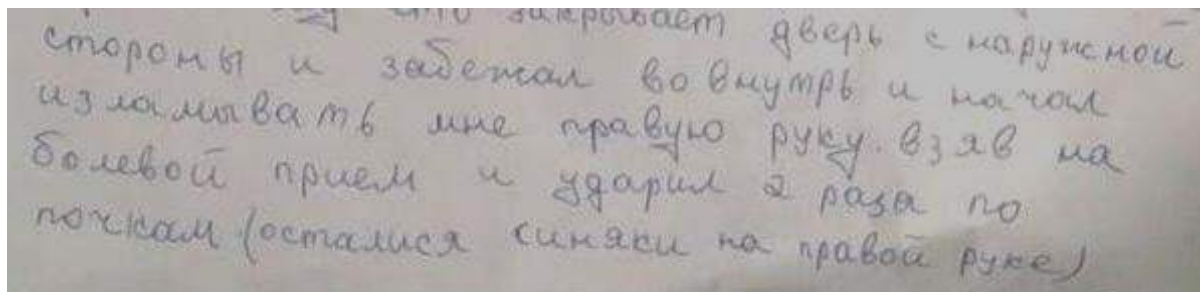 что закрывает дверь с наружной
стороны и забежал во внутрь и начал
изламывать мне правую руку. взяв на
болевой прием и ударил 2 раза по
почкам (осталися синяки на правой руке)